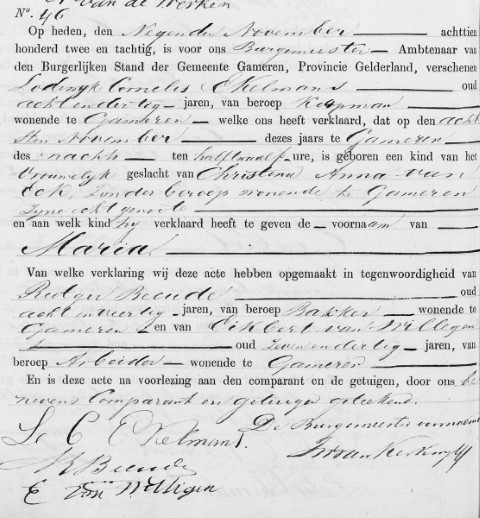 van de Werken
N°. 46
Op heden, den Negenden November achttien
honderd twee en tachtig, is voor ons Burgemeester Ambtenaar
van den Burgerlijken Stand der Gemeente Gameren, Provincie Gelderland, verschenen
Lodewijk Cornelis Ekelmans oud
acht en dertig jaren, van beroep Koopman
wonende te Gameren welke ons heeft verklaard, dat op den acht
sten November dezes jaars te Gameren
des nachts ten half twaalf ure, is geboren een kind van het
Vrouwelijk geslacht van Christina Anna van
Eck, Zonder beroep wonende te Gameren
Zijne echtgenoote
en aan welk kind hij verklaard heeft te geven de voornaam van
Maria
Van welke verklaring wij deze acte hebben opgemaakt in tegenwoordigheid van
Rutger Beende oud
acht en veertig jaren, van beroep Bakker wonende te
Gameren en van Eikbert van Willigen
oud Zeven en dertig jaren, van
beroep Arbeider wonende te Gameren
En is deze acte na voorlezing aan den comparant en de getuigen, door ons be
nevens Comparant en getuigen geteekend.
L. C. Ekelmans. De Burgemeester voornoemd
R Beende
E van Willigen